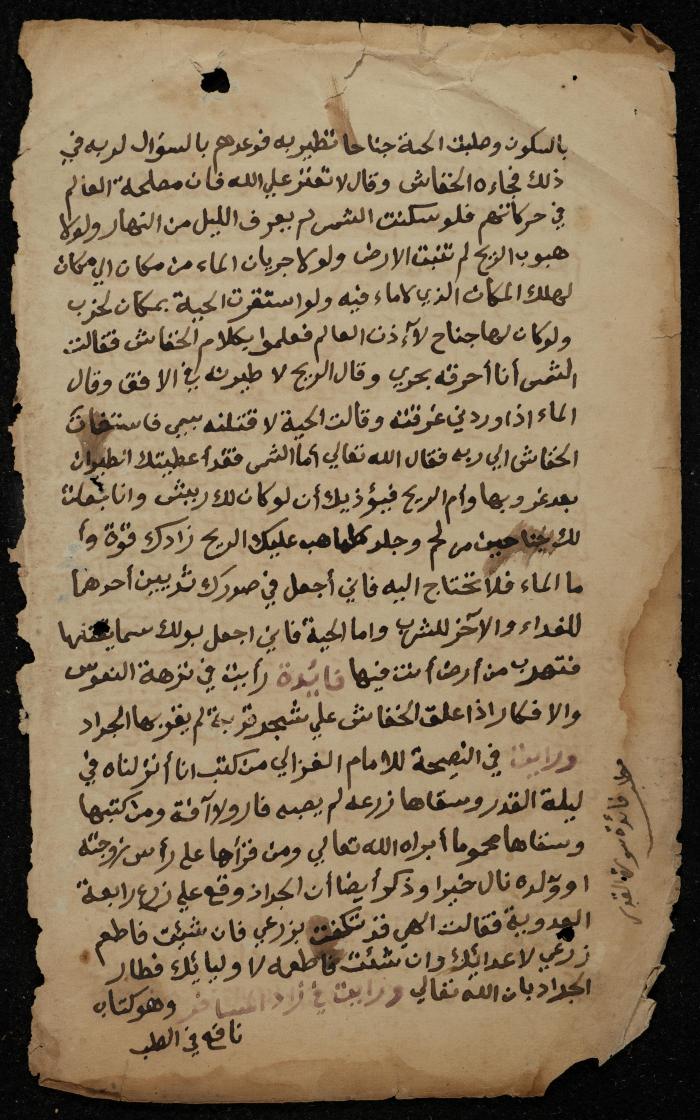 بالسكون وطلبت الحية جناحا تطير به فوعدهم بالسؤال لربه في
ذلك فجاءه الخفاش وقال لا تعتز علي الله فان مصلحة العالم
في حركاتهم فلو سكنت الشمس لم يعرف الليل من النهار ولولا
هبوب الريح لم تنبت الارض ولولا جريان الماء من مكان الي مكان
لهلك المكان الذي لاماء فيه ولو استقرت الحية بمكان لخرب
ولو كان لها جناح لآءذت العالم فعلموا بكلام الخفاش فقالت
الشمس أنا أحرقه بحري وقال الريح لا طيرنه في الافق وقال
الماء اذا وردني غرقته وقالت الحية لاقتلنه بسمي فاستغاث
الخفاش الي ربه فقال الله تعالي أما الشمس فقد أعطيتك الطيران
بعد غروبها وأم الريح فيؤذيك أن لو كان لك ريش وانا جعلت
لك جناحين من لحم وجلد كلما هب عليك الريح زادك قوة وأ
ما الماء فلا تحتاج اليه فاني أجعل في صدرك ثديين أحدهما
للغداء والآخر للشرب واما الحية فاني اجعل بولك سما يقتلها
فتهرب من أرض أنت فيها فائدة رأيت في نزهة النفوس
والافكار اذا علق الخفاش علي شجر قرية لم يقربها الجراد
ورايت في النصيحة للامام الغزالي من كتب انا أنزلناه في
ليلة القدر وسقاها زرعه لم يصبه فار ولا آفة ومن كتبها
وسقاها محموما أبراه الله تعالي ومن قرأها علي رأس زوجته
او ولده نال خيرا وذكر أيضا أن الجراد وقع علي زرع رابعة
العدوية فقالت الهي قد تكفلت بزرعي فان شئت فاطعم
زرعي لاعدائك وان شئت فاطعمه لاوليائك فطار
الجراد باذن الله تعالي ورايت في زاد المسافر وهو كتاب
نافع في الطب
مطلب فائدة سورة القدر